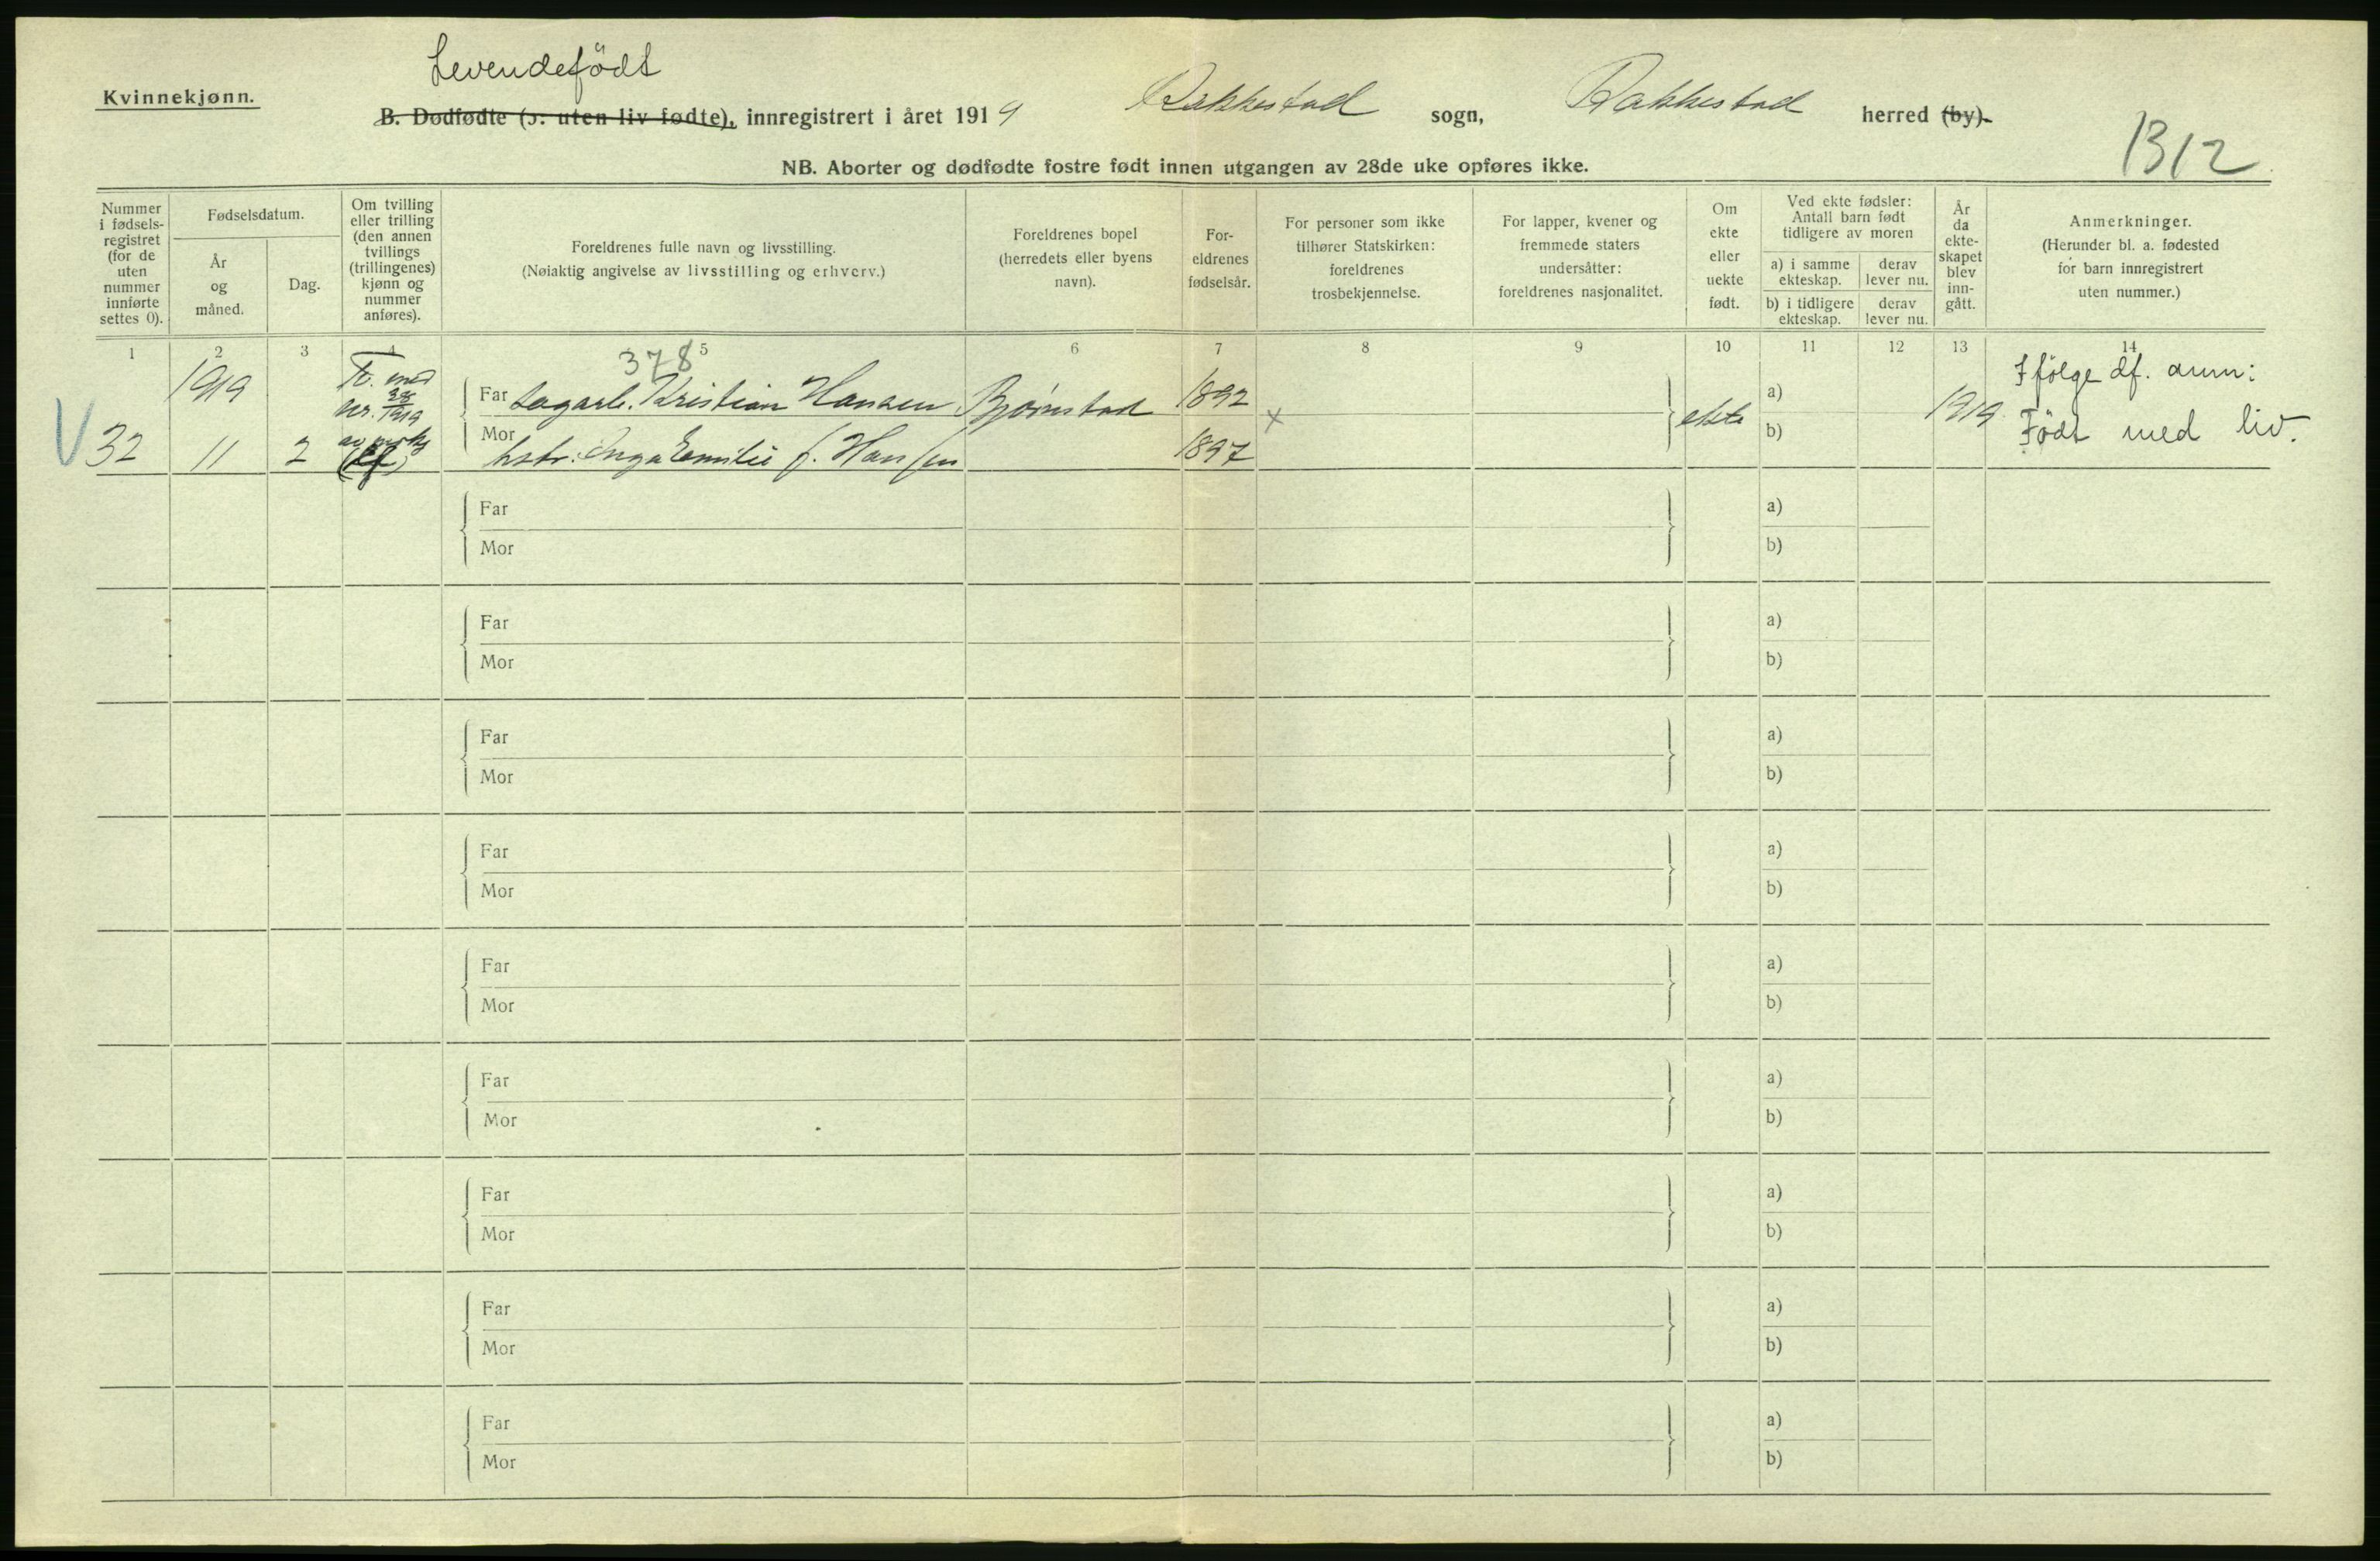 Levendefödt
Kvinnekjønn.
B. Dødfødte (ɔ: uten liv fødte), innregistrert i året 1919 Rakkestad sogn, Rakkestad herred (by).
1312
NB. Aborter og dødfødte fostre født innen utgangen av 28de uke opføres ikke.
Nummer
i fødsels-
registret
(for de
uten
nummer
innførte
settes 0).
Fødselsdatum.
År
og
måned.
Dag.
Om tvilling
eller trilling
(den annen
tvillings
(trillingenes)
kjønn og
nummer
anføres).
Foreldrenes fulle navn og livsstilling.
(Nøiaktig angivelse av livsstilling og erhverv.)
Foreldrenes bopel
(herredets eller byens
navn).
For-
eldrenes
fødselsår.
For personer som ikke
tilhører Statskirken:
foreldrenes
trosbekjennelse.
For lapper, kvener og
fremmede staters
undersåtter:
foreldrenes nasjonalitet.
Om
ekte
eller
uekte
født.
Ved ekte fødsler:
Antall barn født
tidligere av moren
a) i samme
ekteskap.
derav
lever nu.
b) i tidligere
ekteskap.
derav
lever nu.
År
da
ekte-
skapet
blev
inn-
gått.
Anmerkninger.
(Herunder bl. a. fødested
for barn innregistrert
uten nummer.)
1 2 3 4 5 6 7 8 9 10 11 12 13 14
378
V 32
1919
11
2
Tv. med
nr. 28/1919
Far Sagarb. Kristian Hansen
Mor hstr. Inga Emilie f. Hansen
Bjørnstad
1892
1897
x
ekte
a)
b)
1919
Ifölge df. anm:
Födt med liv.
Far
Mor
a)
b)
Far
Mor
a)
b)
Far
Mor
a)
b)
Far
Mor
a)
b)
Far
Mor
a)
b)
Far
Mor
a)
b)
Far
Mor
a)
b)
Far
Mor
a)
b)
Far
Mor
a)
b)